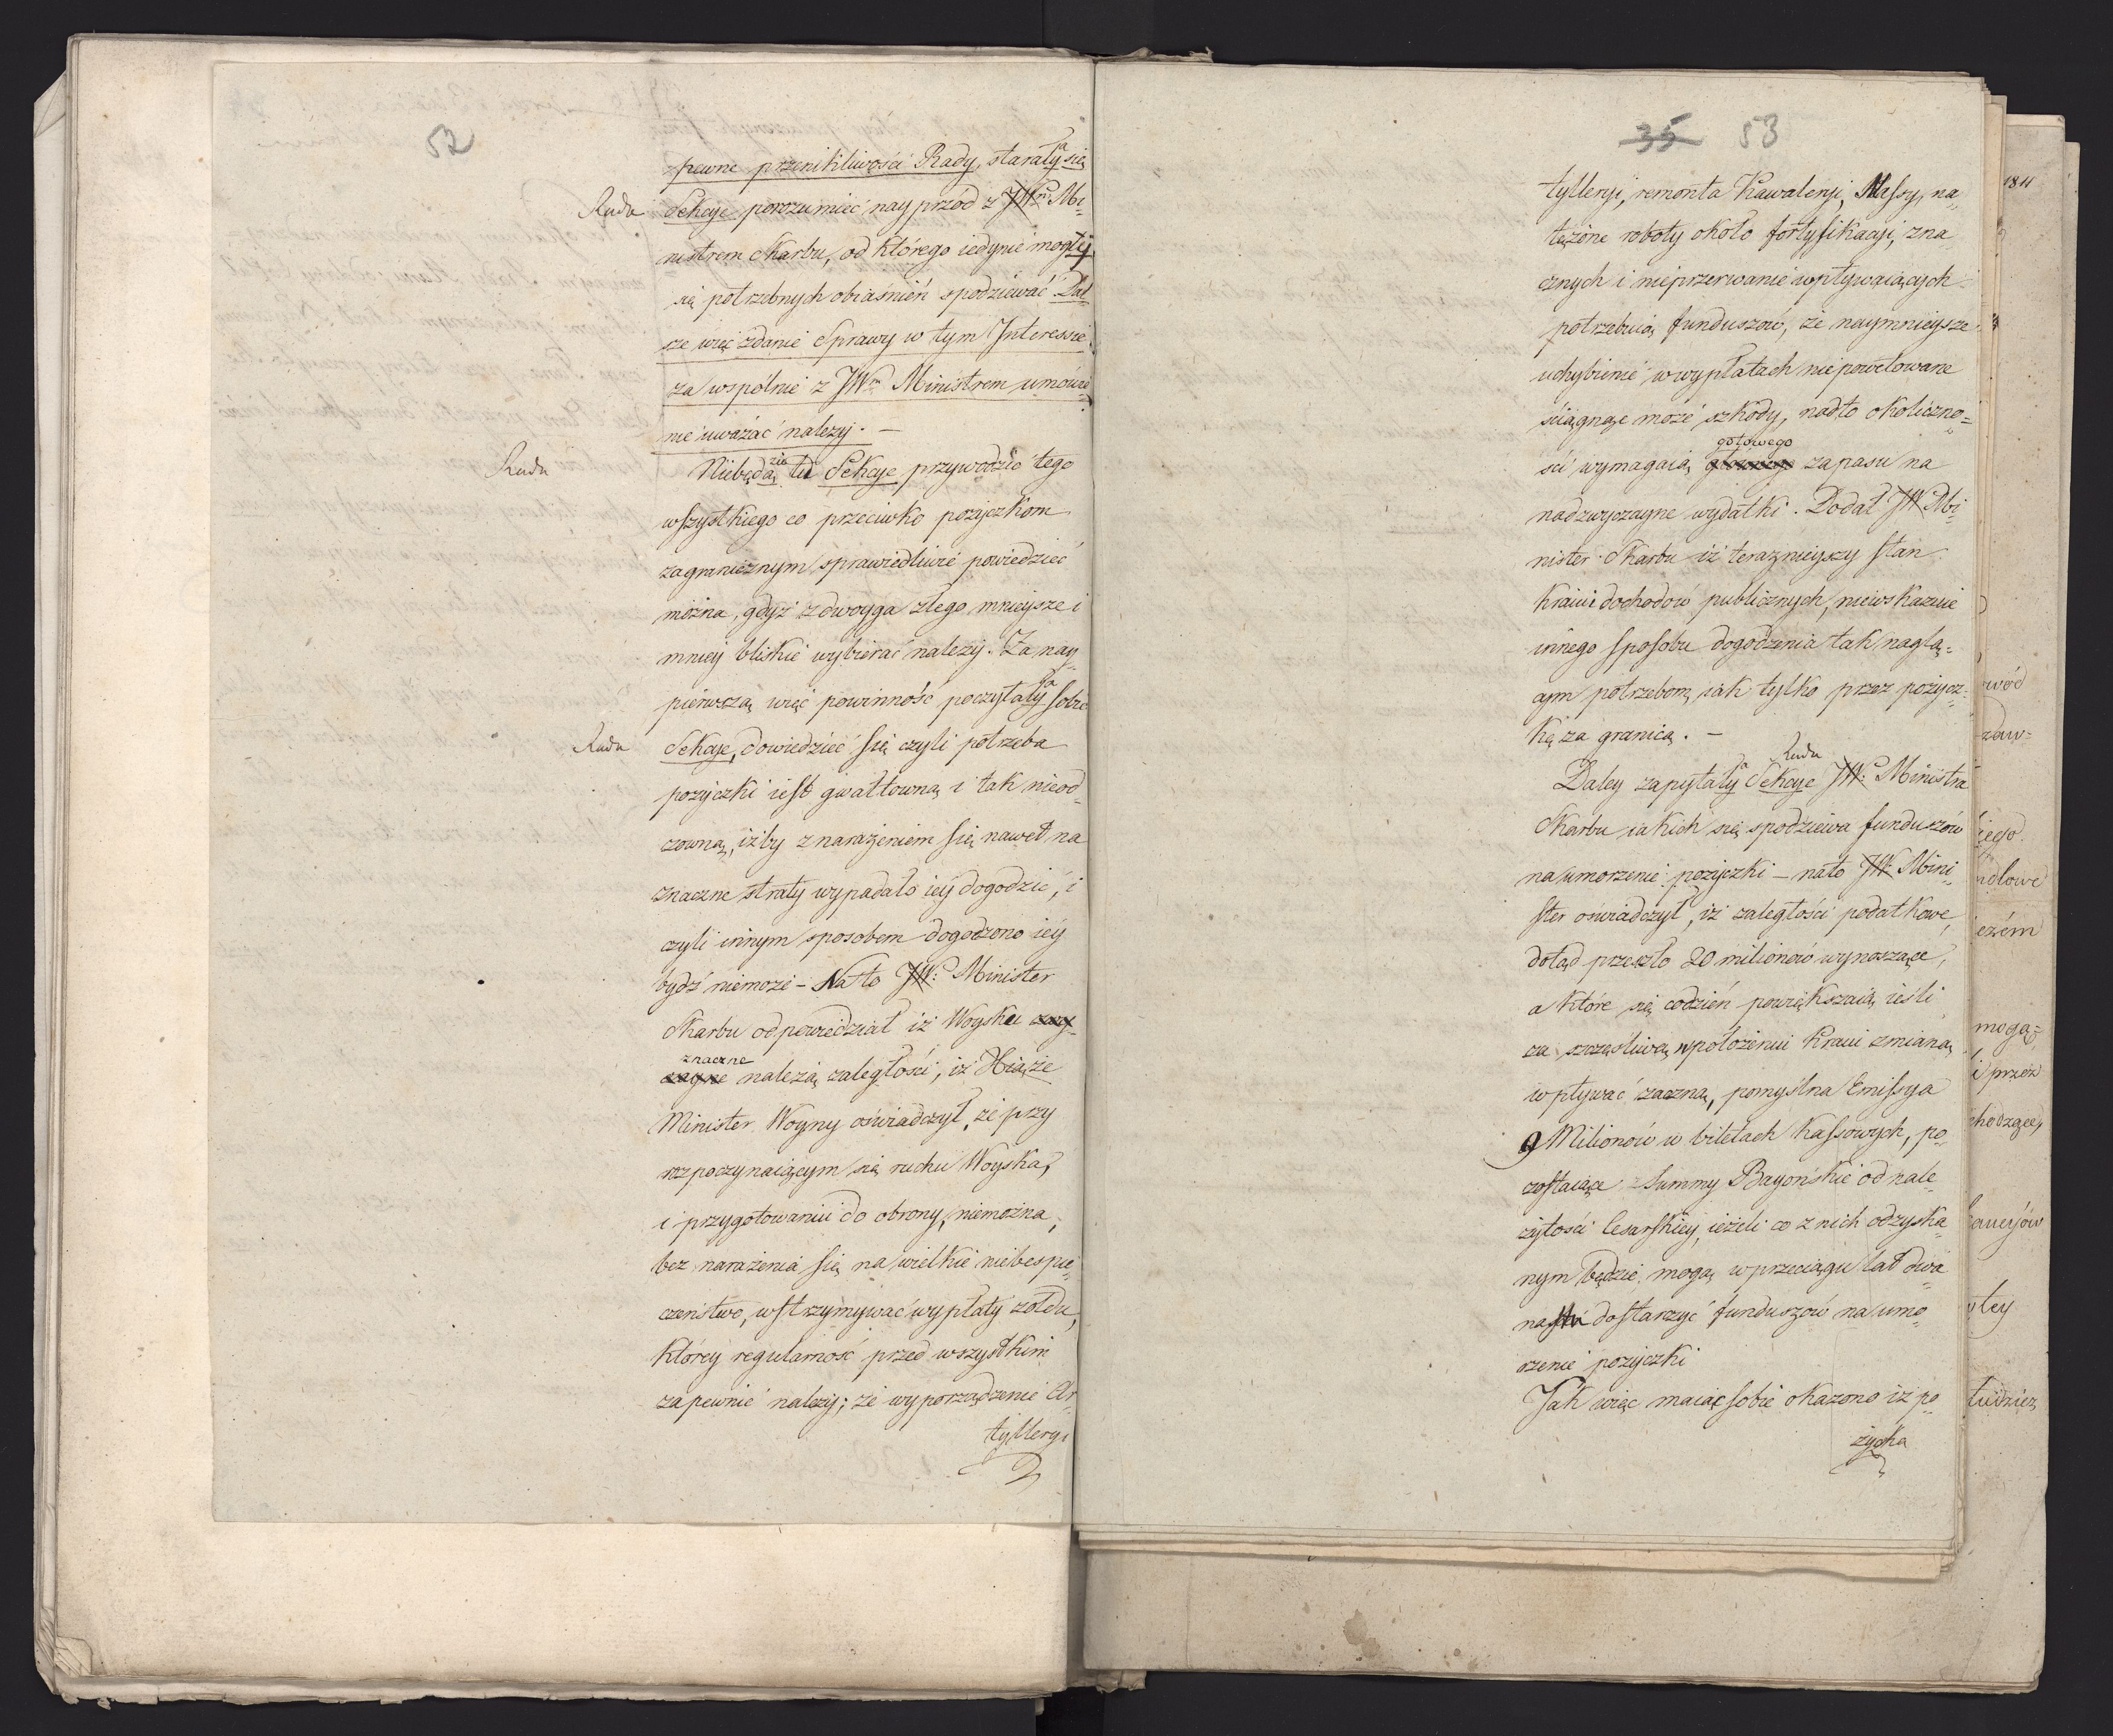 52
zpewne przenikliwości Rady, starały się
a
Rada
Sekcje porozumieć nayprzód z JWm Mi„
nistrem Skarbu, od którego iedynie mogły
się potrzebnych obiaśnień spodziewać Dal„
sze więc zdanie Sprawy w tym Interessie
za wspólnie z JWm Ministrem umówio„
ne uważać należy. —
Rada
Niebędą tu Sekcje przywodzić tego
zie
wszystkiego co przeciwko pożyczkom
zagranicznym sprawiedliwie powiedzieć
można, gdyż z dwoyga złego mnieysze i
mniey bliskie wybierać należy. Za nay„
pierwszą więc powinność poczytały sobie
a
Rada
Sekcje, dowiedzieć się czyli potrzeba
pożyczki iest gwałtowną i tak nieod„
zowną, iżby z narażeniem się nawet na
znaczne straty wypadało iéy dogodzić, i
czyli innym sposobem dogodzono iéy
bydź niemoże – Na to JW: Minister
Skarbu odpowiedział iż Woysku
znaczne
należą zaległości, iż Xiąże
Minister Woyny oświadczył, że przy
rozpoczynaiącym się ruchu Woyska,
i przygotowaniu do obrony, niemożna,
bez narażenia się na wielkie niebespie„
czeństwo, wstrzymywać wypłaty żołdu,
któréy regularność przed wszystkim
zapewnić należy; że wyporządzenie Ar„
tylleryi
35 53
tylleryi, remonta Kawaleryi, Massy, na„
tężone roboty około fortyfikacyi, zna
cznych i nieprzerwanie wpływaiących
potrzebuią funduszów, że naymnieysze
uchybienie w wypłatach niepowetowane
ściągnąć może szkody, nadto okoliczno„
gotowego
ści wymagaią zapasu na
nadzwyczayne wydatki. Dodał JW Mi„
nister Skarbu iż teraznieyszy stan
Kraiu i dochodów publicznych, niewskazuie
innego sposobu dogodzenia tak nagłą„
cym potrzebom, iak tylko przez pożycz„
kę za granicą. –
Rada
Daley zapytały Sekcje JW: Ministra
a
Skarbu iakich się spodziewa funduszów
na umorzenie pożyczki – na to JW: Mini„
ster oświadczył, iż zaległości podatkowe,
dotąd przeszło 20 milionów wynoszące,
a które się codzień powiększaią, ieśli
za szczęśliwą w położeniu Kraiu zmianą
wpływać zaczną, pomyślna Emissya
9 Milionów w biletach kassowych, po„
zostaiące Summy Bayońskie od nale„
żytości Cesarskiey, ieżeli co z nich odzyska„
nym będzie, mogą w przeciągu lat dwu„
nastu dostarczyć funduszów na umo„
rzenie pożyczki
Tak więc maiąc sobie okazono iż po„
życka
1811
wód
zaw=
iego.
idlowe
mogą=
i przez
chodzące,
tey
tudzież